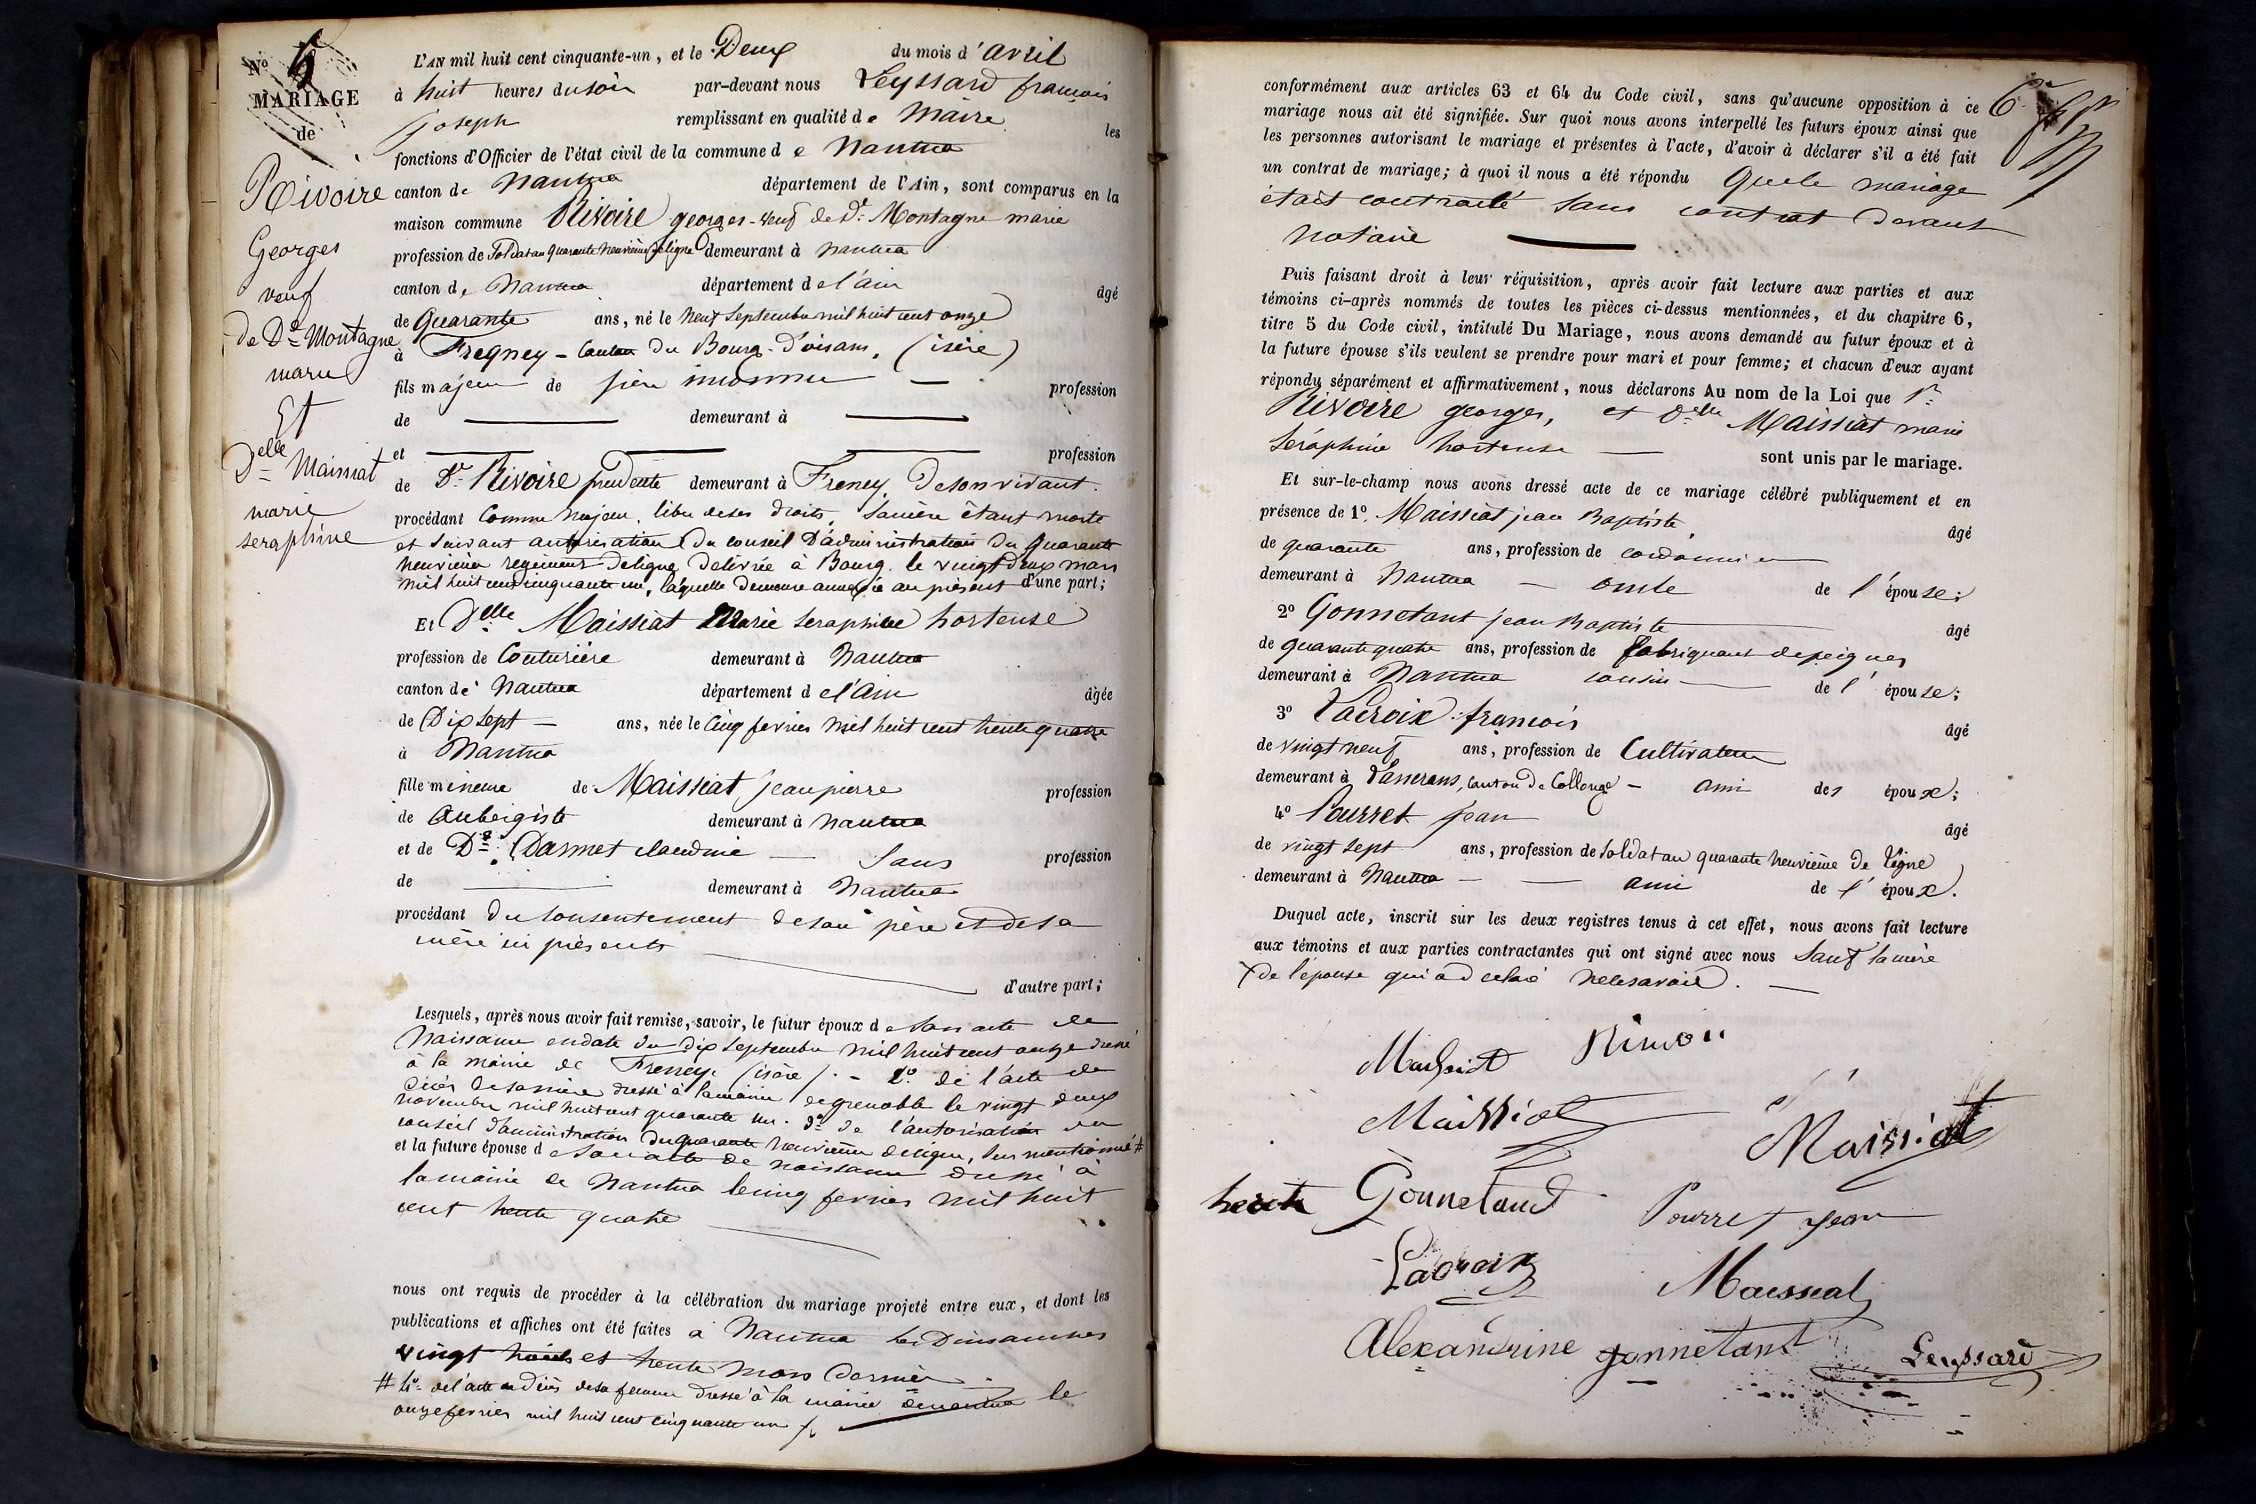 N° 5
MARIAGE
de
Rivoire
Georges
veuf
de De Montagne
marie
Et
Delle Maissiat
marie
seraphine
L'AN mil huit cent cinquante-un, et le Deux du mois d'avril
à huit heures du soir par-devant nous Leyssard françois
joseph remplissant en qualité de Maire les
fonctions d'Officier de l'état civil de la commune de Nantua
canton de Nantua département de l'Ain, sont comparus en la
maison commune Rivoire georges veuf de De Montagne marie
profession de Soldat au Quarante neuvième de ligne demeurant à nantua
canton de Nantua département de l'ain âgé
de Quarante ans, né le neuf septembre mil huit cent onze
à Fregney - Canton du Bourg-d'oisans, (isère)
fils majeur de père inconnu — profession
de — demeurant à —
et — profession
de De Rivoire prudente demeurant à Freney de son vivant.
procédant Comme majeur, libre de ses droits, sa mère étant morte
et suivant autorisation du conseil D'administration du Quarante
neuvième regiment de ligne délivrée à Bourg, le vingt deux mars
mil huit cent cinquante un, laquelle demeure annexée au présent d'une part;
Et Delle Maissiat Marie seraphine hortense
profession de Couturière demeurant à Nantua
canton de Nantua département de l'Ain âgée
de Dix sept — ans, née le Cinq fevrier mil huit cent trente quatre
à Nantua
fille mineure de Maissiat jean pierre profession
de Aubergiste demeurant à nantua
et de De Darmet claudine — sans profession
de — demeurant à Nantua
procédant du consentement de son père et de sa
mère ici présents
d'autre part;
Lesquels, après nous avoir fait remise, savoir, le futur époux de son acte de
Naissance en date du dix septembre mil huit cent onze dressé
à la mairie de Freney (isère). - 2° de l'acte de
décès de sa mère dressé à la mairie de grenoble le vingt deux
novembre mil huit cent quarante un. 3° de l'autorisation du
conseil d'administration du quarante neuvième de ligne, sus mentionné #
et la future épouse de son acte de naissance dressé à
la mairie de Nantua le cinq fevrier mil huit
cent trente quatre
nous ont requis de procéder à la célébration du mariage projeté entre eux, et dont les
publications et affiches ont été faites à Nantua les Dimanches
vingt trois et trente mars dernier.
# 4° de l'acte de décès de sa femme dressé à la mairie de nantua le
onze fevrier mil huit cent cinquante un
conformément aux articles 63 et 64 du Code civil, sans qu'aucune opposition à ce
mariage nous ait été signifiée. Sur quoi nous avons interpellé les futurs époux ainsi que
les personnes autorisant le mariage et présentes à l'acte, d'avoir à déclarer s'il a été fait
un contrat de mariage; à quoi il nous a été répondu Que le mariage
était contracté sans contrat devant
notaire —
Puis faisant droit à leur réquisition, après avoir fait lecture aux parties et aux
témoins ci-après nommés de toutes les pièces ci-dessus mentionnées, et du chapitre 6,
titre 5 du Code civil, intitulé Du Mariage, nous avons demandé au futur époux et à
la future épouse s'ils veulent se prendre pour mari et pour femme; et chacun d'eux ayant
répondu séparément et affirmativement, nous déclarons Au nom de la Loi que Sr
Rivoire georges, et Delle Maissiat marie
Séraphine hortense — sont unis par le mariage.
Et sur-le-champ nous avons dressé acte de ce mariage célébré publiquement et en
présence de 1°. Maissiat jean Baptiste âgé
de quarante ans, profession de cordonnier
demeurant à Nantua — oncle de l'épouse;
2° Gonnetant jean Baptiste âgé
de quarante quatre ans, profession de fabriquant de peignes
demeurant à Nantua cousin — de l'épouse;
3° Lacroix françois âgé
de vingt neuf ans, profession de Cultivateur
demeurant à Lancrans, canton de Collonge - ami des époux;
4° Pourret Jean âgé
de vingt sept ans, profession de Soldat au quarante neuvième de ligne
demeurant à Nantua — — ami de l'époux.
Duquel acte, inscrit sur les deux registres tenus à cet effet, nous avons fait lecture
aux témoins et aux parties contractantes qui ont signé avec nous Sauf la mère
de l'épouse qui a déclaré ne le savoir. —
Maissiat
Maissiat
Gonnetand
Pourret jean
Lacroix
Maissiat
Alexandrine gonnetant
Leyssard